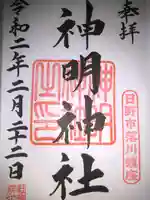 奉拝
神明神社
日野市落川鎮座
令和二年二月二十二日